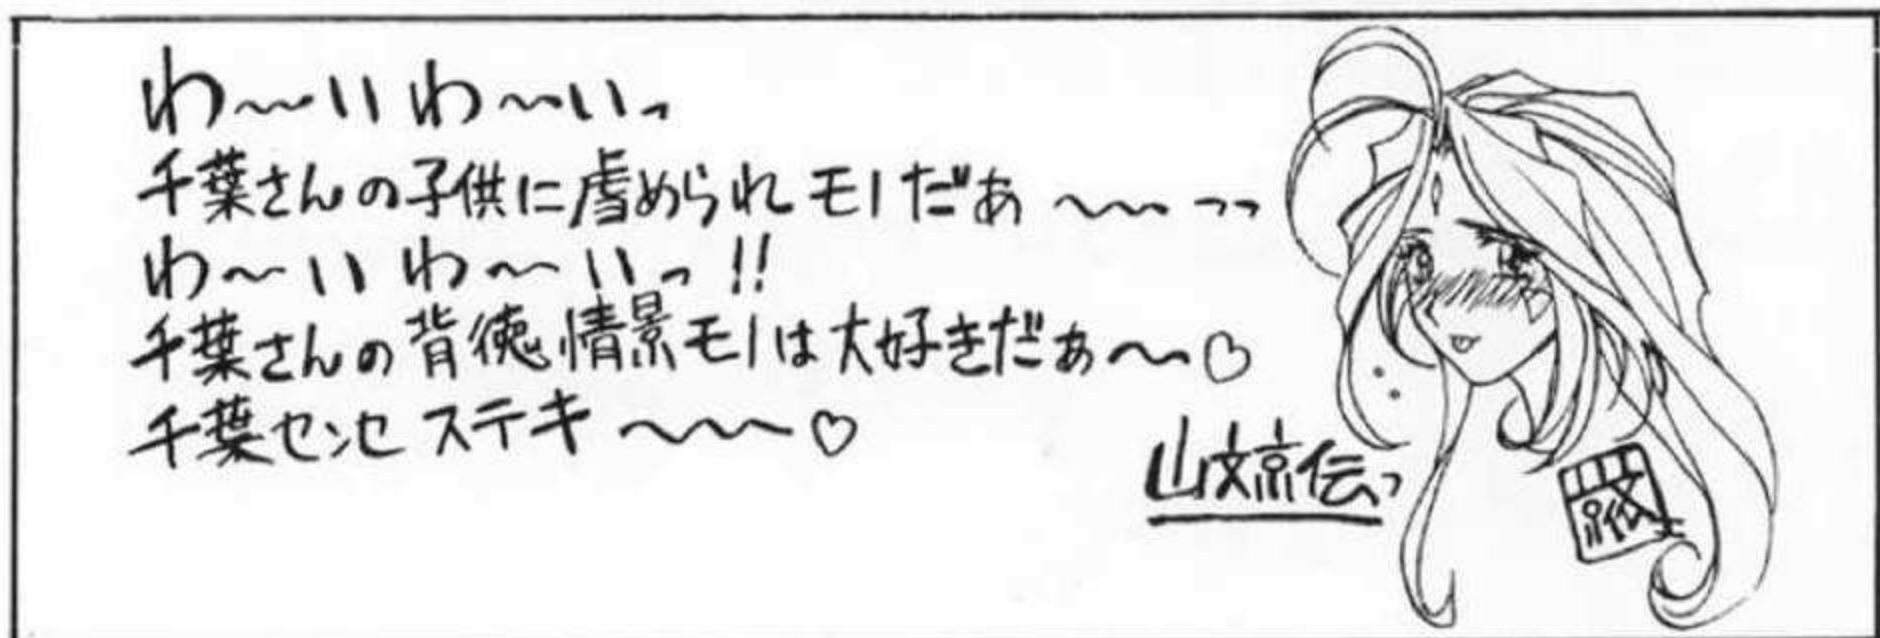 わ～いわ～いっ
千葉さんの子供に虐められモノだぁ～～っっ
わ～いわ～いっ!!
千葉さんの背徳情景モノは大好きだぁ～～♡
千葉センセステキ～～～♡
山文京伝っ